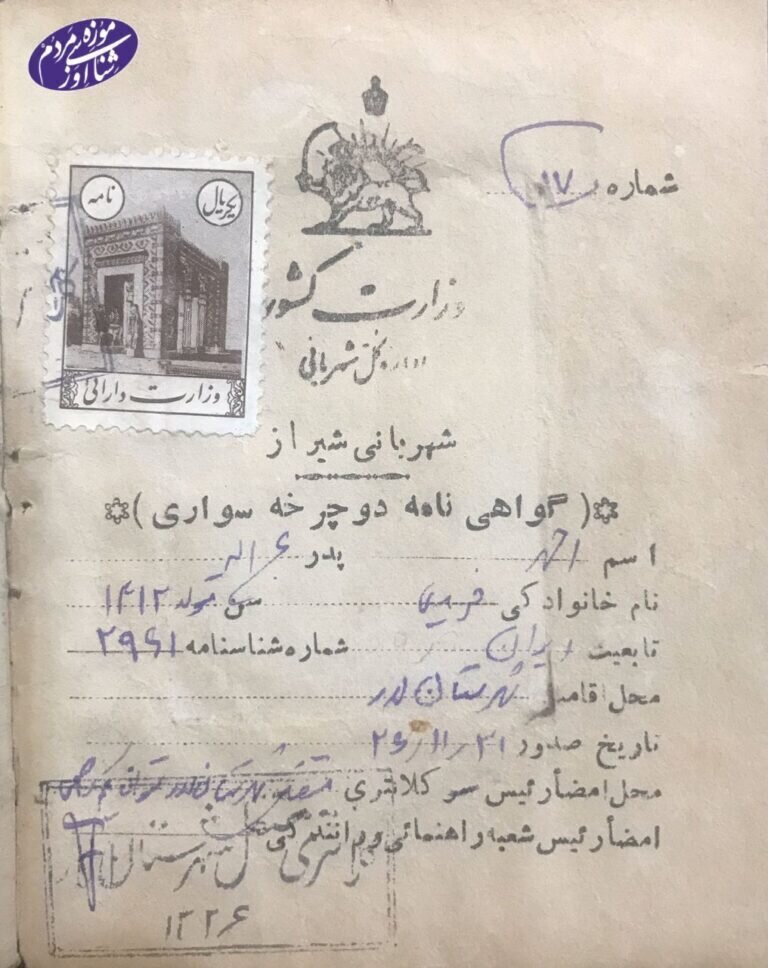 موزه مردم شناسی اوز
شماره ۱۷
یکریال
نامه
وزارت دارائی
وزارت کشور
اداره کل شهربانی
شهربانی شیراز
(گواهی نامه دوچرخه سواری)
اسم احمد پدر
نام خانوادگی سن تولد ۱۳۱۲
تابعیت ایران شماره شناسنامه ۲۹۶۱
محل اقامت شهرستان لار
تاریخ صدور
محل امضأ رئیس سر کلانتری
امضأ رئیس شعبه راهنمائی و رانندگی
شهرستان لار
۱۳۲۶